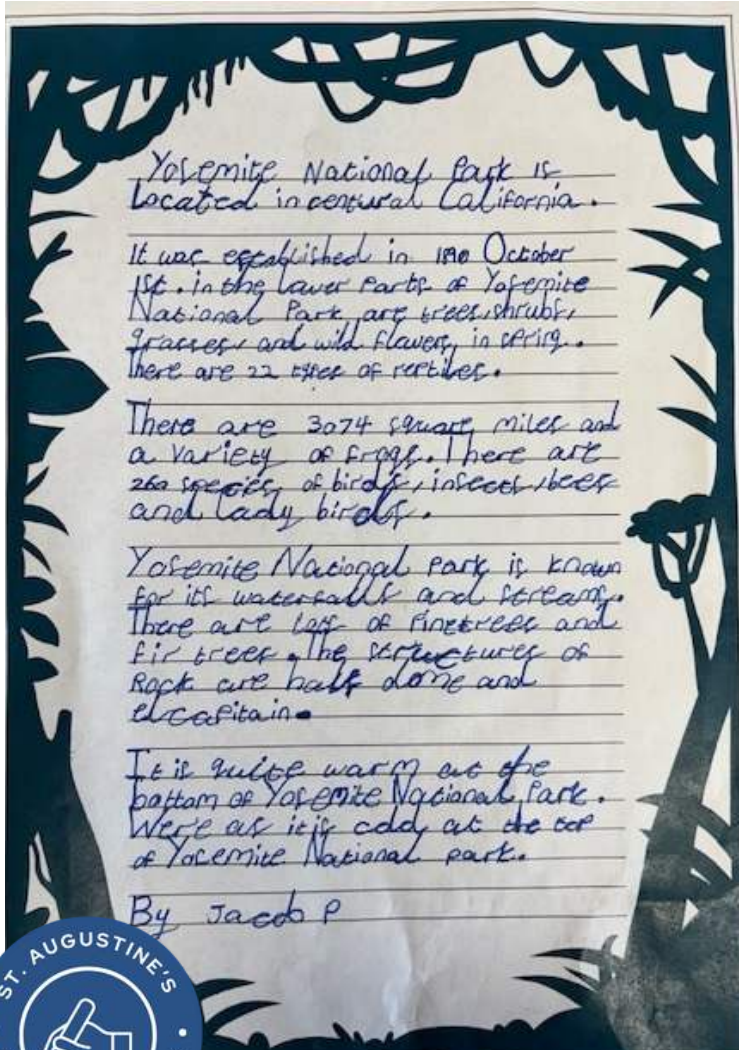 Yosemite National Park is
Located in centural California.
It was established in 1890 October
1st. in the lower parts of Yosemite
National Park are trees, shrubs,
grasses, and wild flowers, in spring.
There are 22 types of reptiles.
There are 3074 square miles and
a variety of frogs. There are
260 species, of birds, insects, bees
and lady birds.
Yosemite National park is known
for its waterfalls and streams.
There are lots of Pinetrees and
fir trees. The structures of
Rock are half dome and
elcapitain.
It is quite warm at the
bottom of Yosemite National Park.
Were as it is cold at the top
of Yosemite National park.
By Jacob P
ST. AUGUSTINE'S